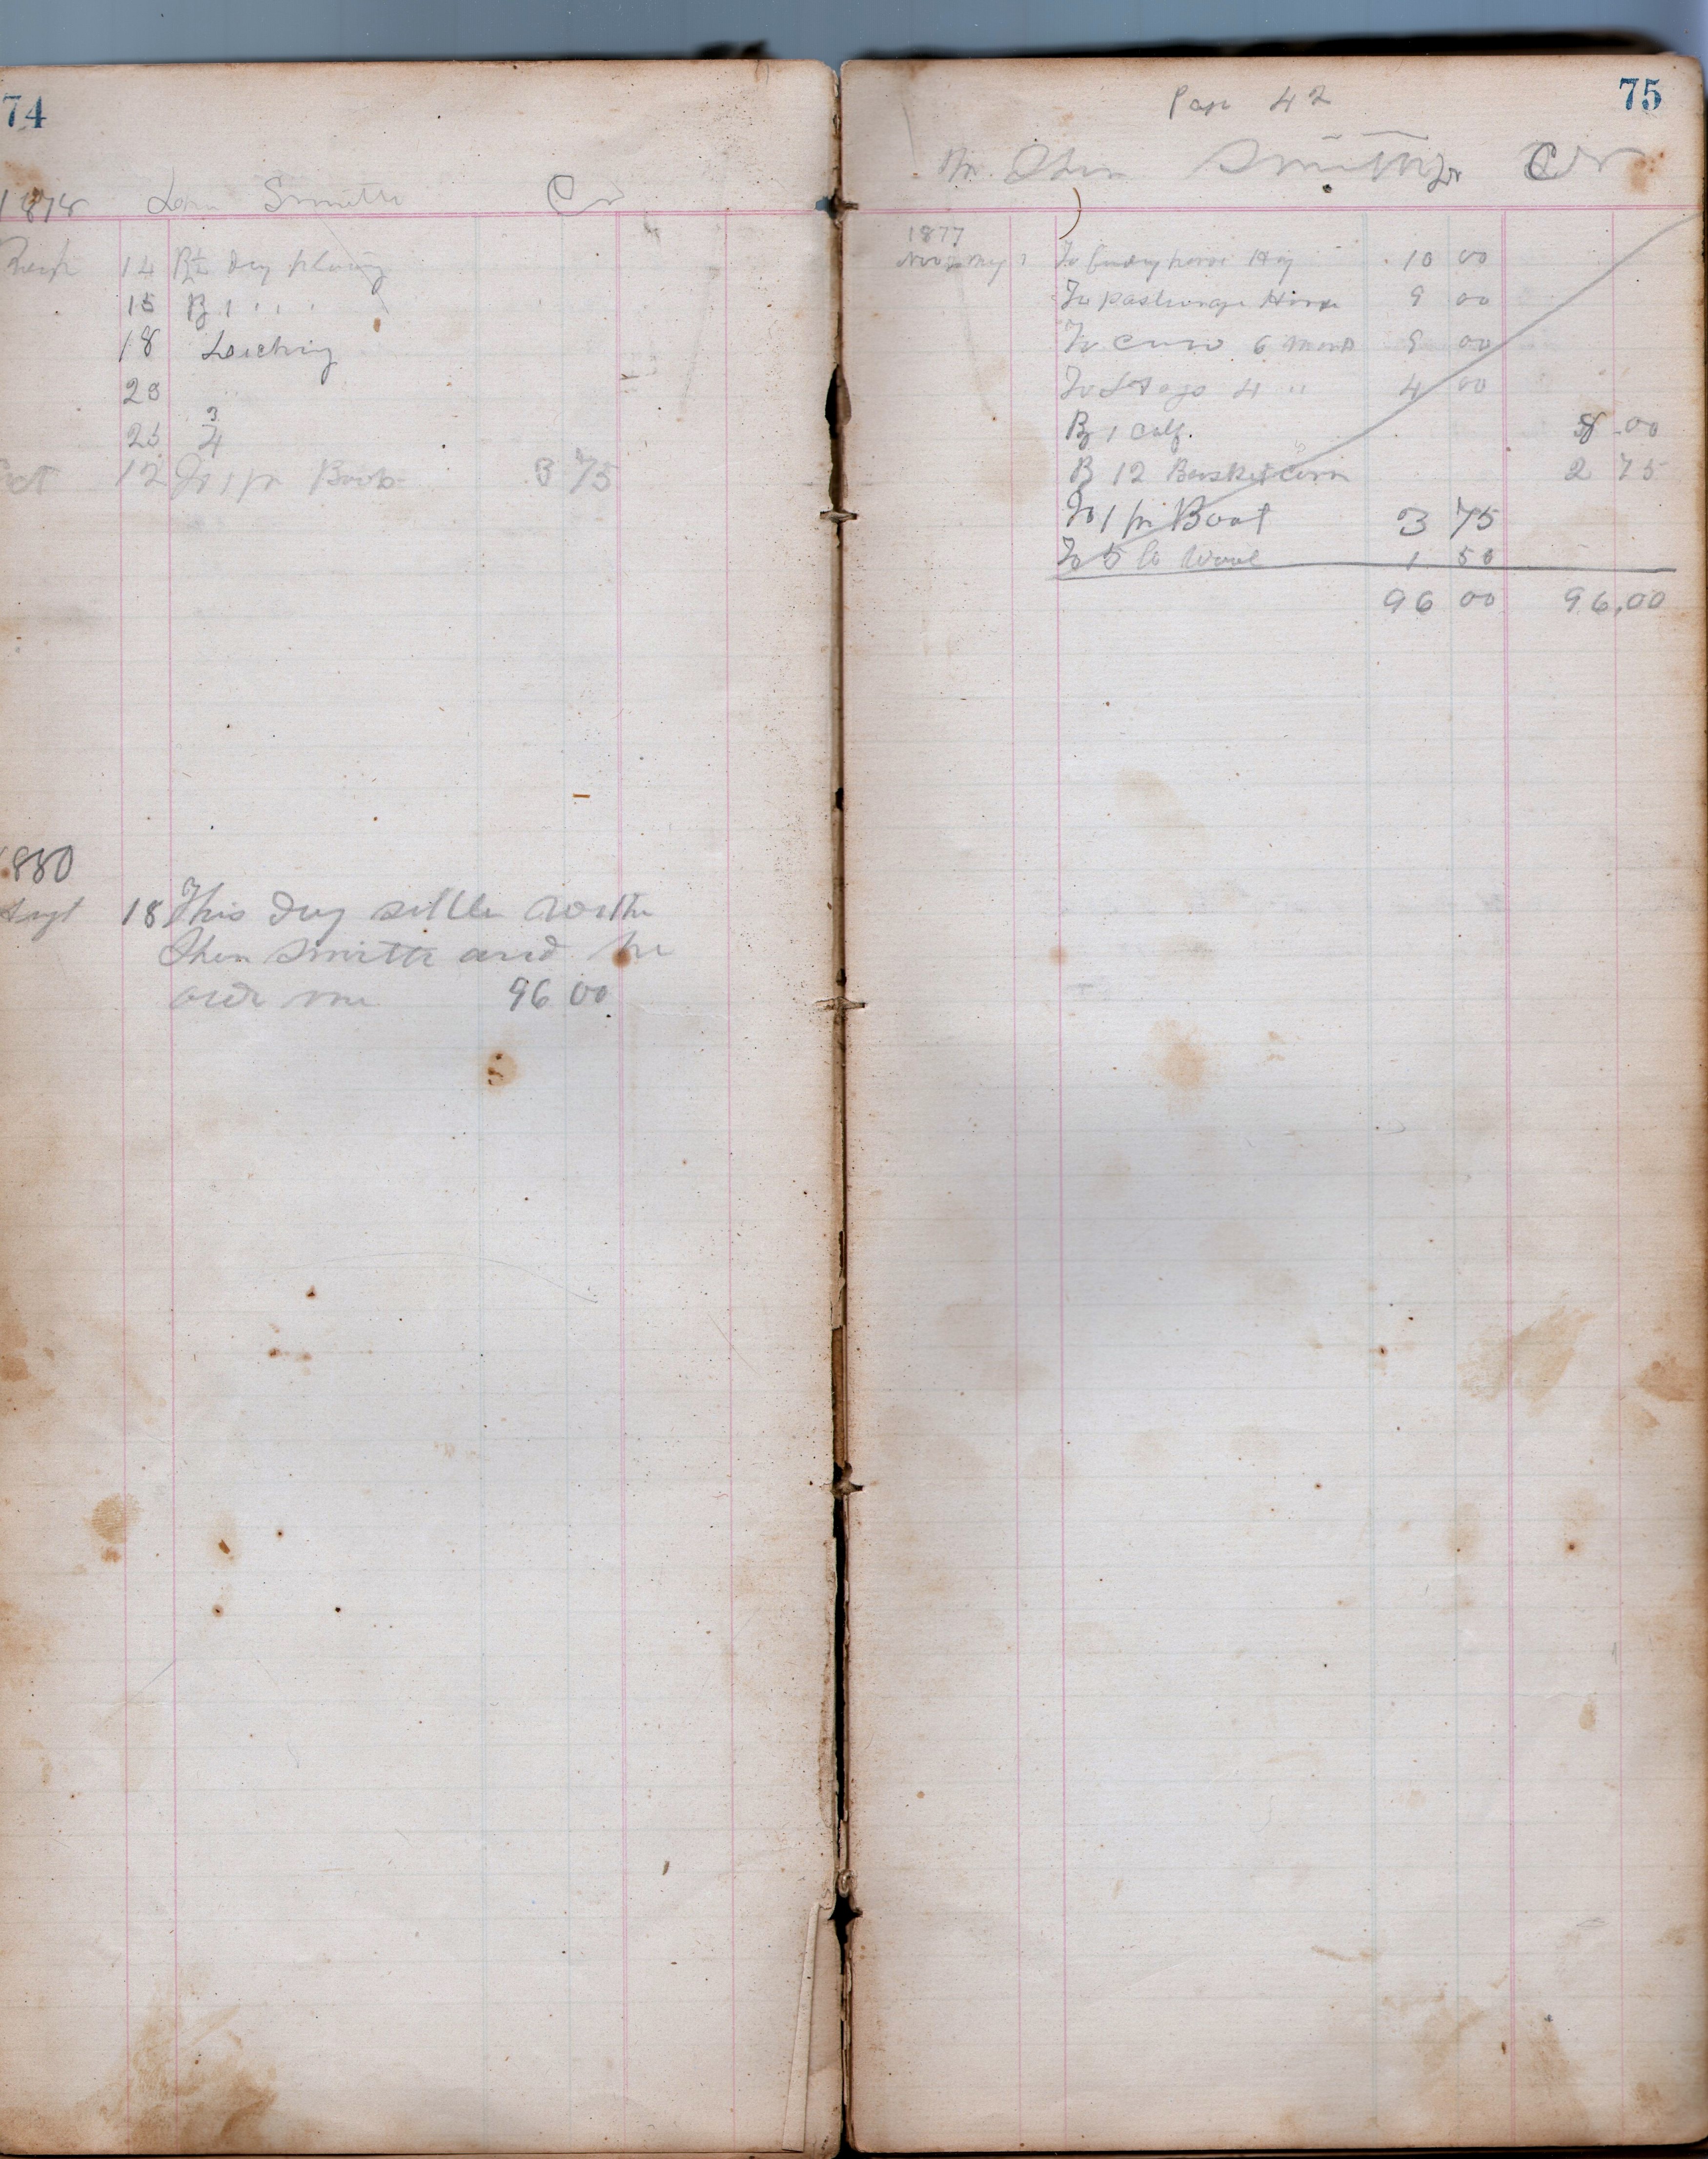 74
1878 Smith Cr
14 By ½ Day plowing
15 By 1 " " "
18
20
25 3/4
Oct 12 To 1 pr Boots 3 75
1880
Sept 18 This Day settle with
Smith and he
owed me 96 00
75
Page 42
Smith Dr Cr
1877
Nov To Hay 10 00
To pasturage Horse 9 00
To Cow 6 month 9 00
To 4 " 4 00
By 1 Calf. 8 00
By 12 Basket Corn 2 75
To 1 pr Boot 3 75
To 5 lb Wool 1 50
96 00 96.00